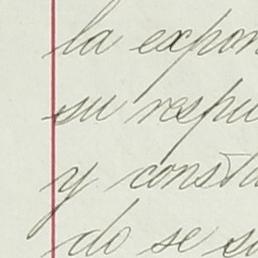 la expon
su respu
y consta
do se s